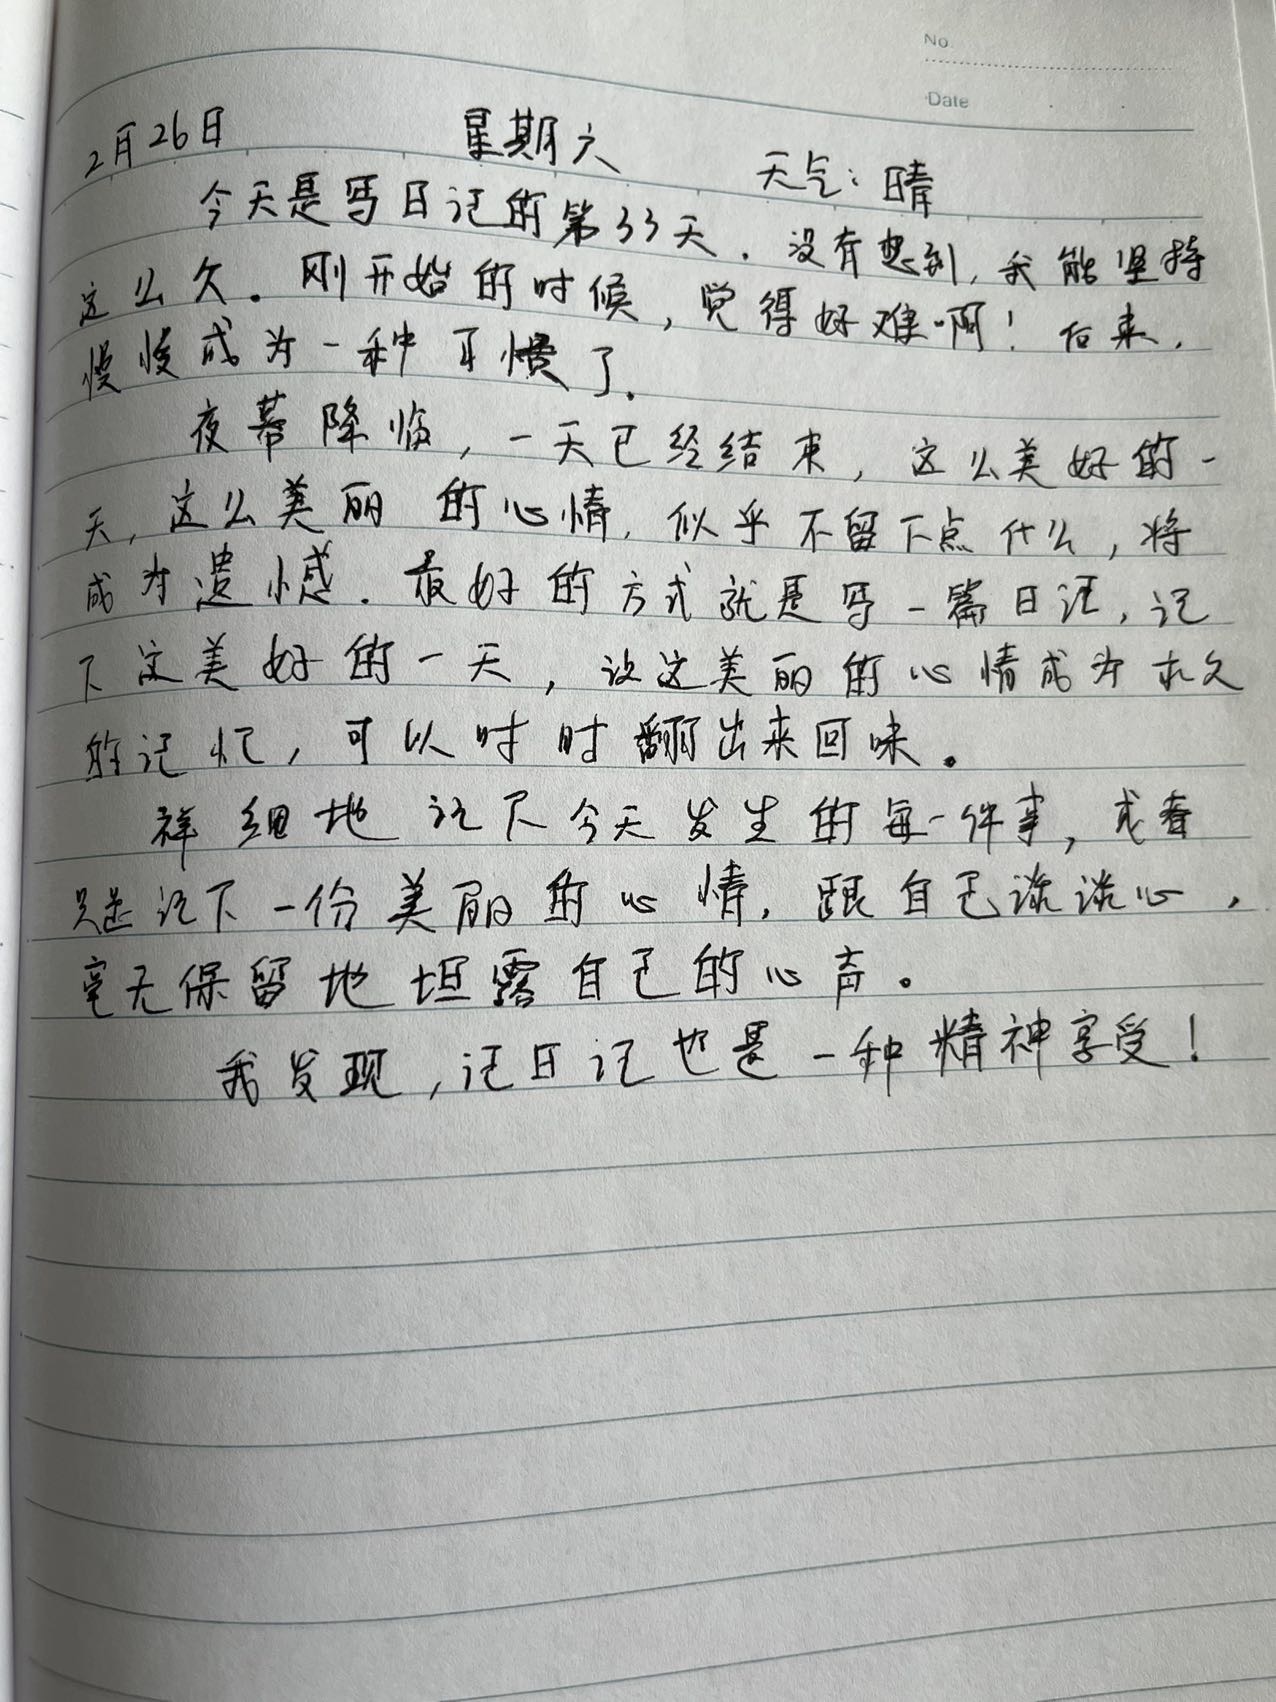 No.
Date
2月26日 星期六 天气：晴
今天是写日记的第33天．没有想到，我能坚持
这么久。刚开始的时候，觉得好难啊！后来，
慢慢成为一种习惯了．
夜幕降临，一天已经结束，这么美好的一
天，这么美丽的心情，似乎不留下点什么，将
成为遗憾．最好的方式就是写一篇日记，记
下这美好的一天，让这美丽的心情成为永久
的记忆，可以时时翻出来回味。
祥细地记下今天发生的每一件事，或者
只是记下一份美丽的心情，跟自己谈谈心，
毫无保留地坦露自己的心声。
我发现，记日记也是一种精神享受！